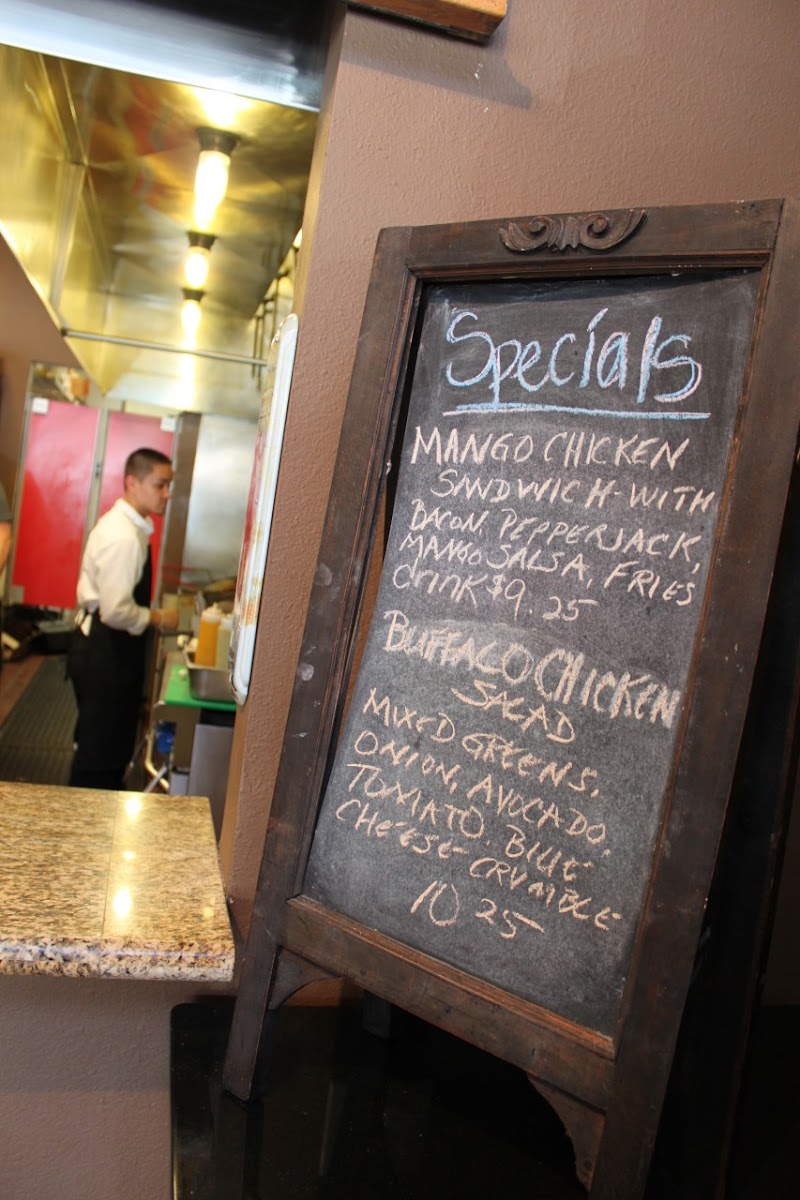 Specials
MANGO CHICKEN
SANDWICH-WITH
BACON, PEPPERJACK,
MANGO SALSA, FRIES
drink $9.25
BUFFALO CHICKEN
SALAD
MIXED GREENS,
ONION, AVOCADO,
TOMATO, BLUE
CHEESE CRUMBLE
10 25